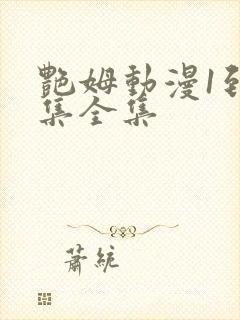 艷姆動漫1到
集全集
蕭統